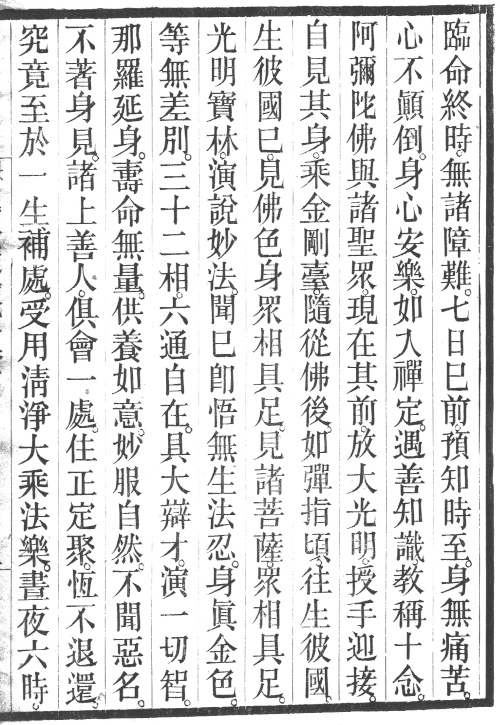 臨命終時。無諸障難。七日已前。預知時至。身無痛苦。
心不顚倒。身心安樂。如入禪定。遇善知識敎稱十念。
阿彌陀佛與諸聖眾現在其前。放大光明。授手迎接。
自見其身。乘金剛臺。隨從佛後。如彈指頃。往生彼國。
生彼國已。見佛色身眾相具足。見諸菩薩。眾相具足。
光明寶林。演說妙法。聞已卽悟無生法忍。身眞金色。
等無差別。三十二相。六通自在。具大辯才。演一切智。
那羅延身。壽命無量。供養如意。妙服自然。不聞惡名。
不著身見。諸上善人。俱會一處。住正定聚。恆不退還。
究竟至於一生補處。受用淸淨大乘法樂。晝夜六時。